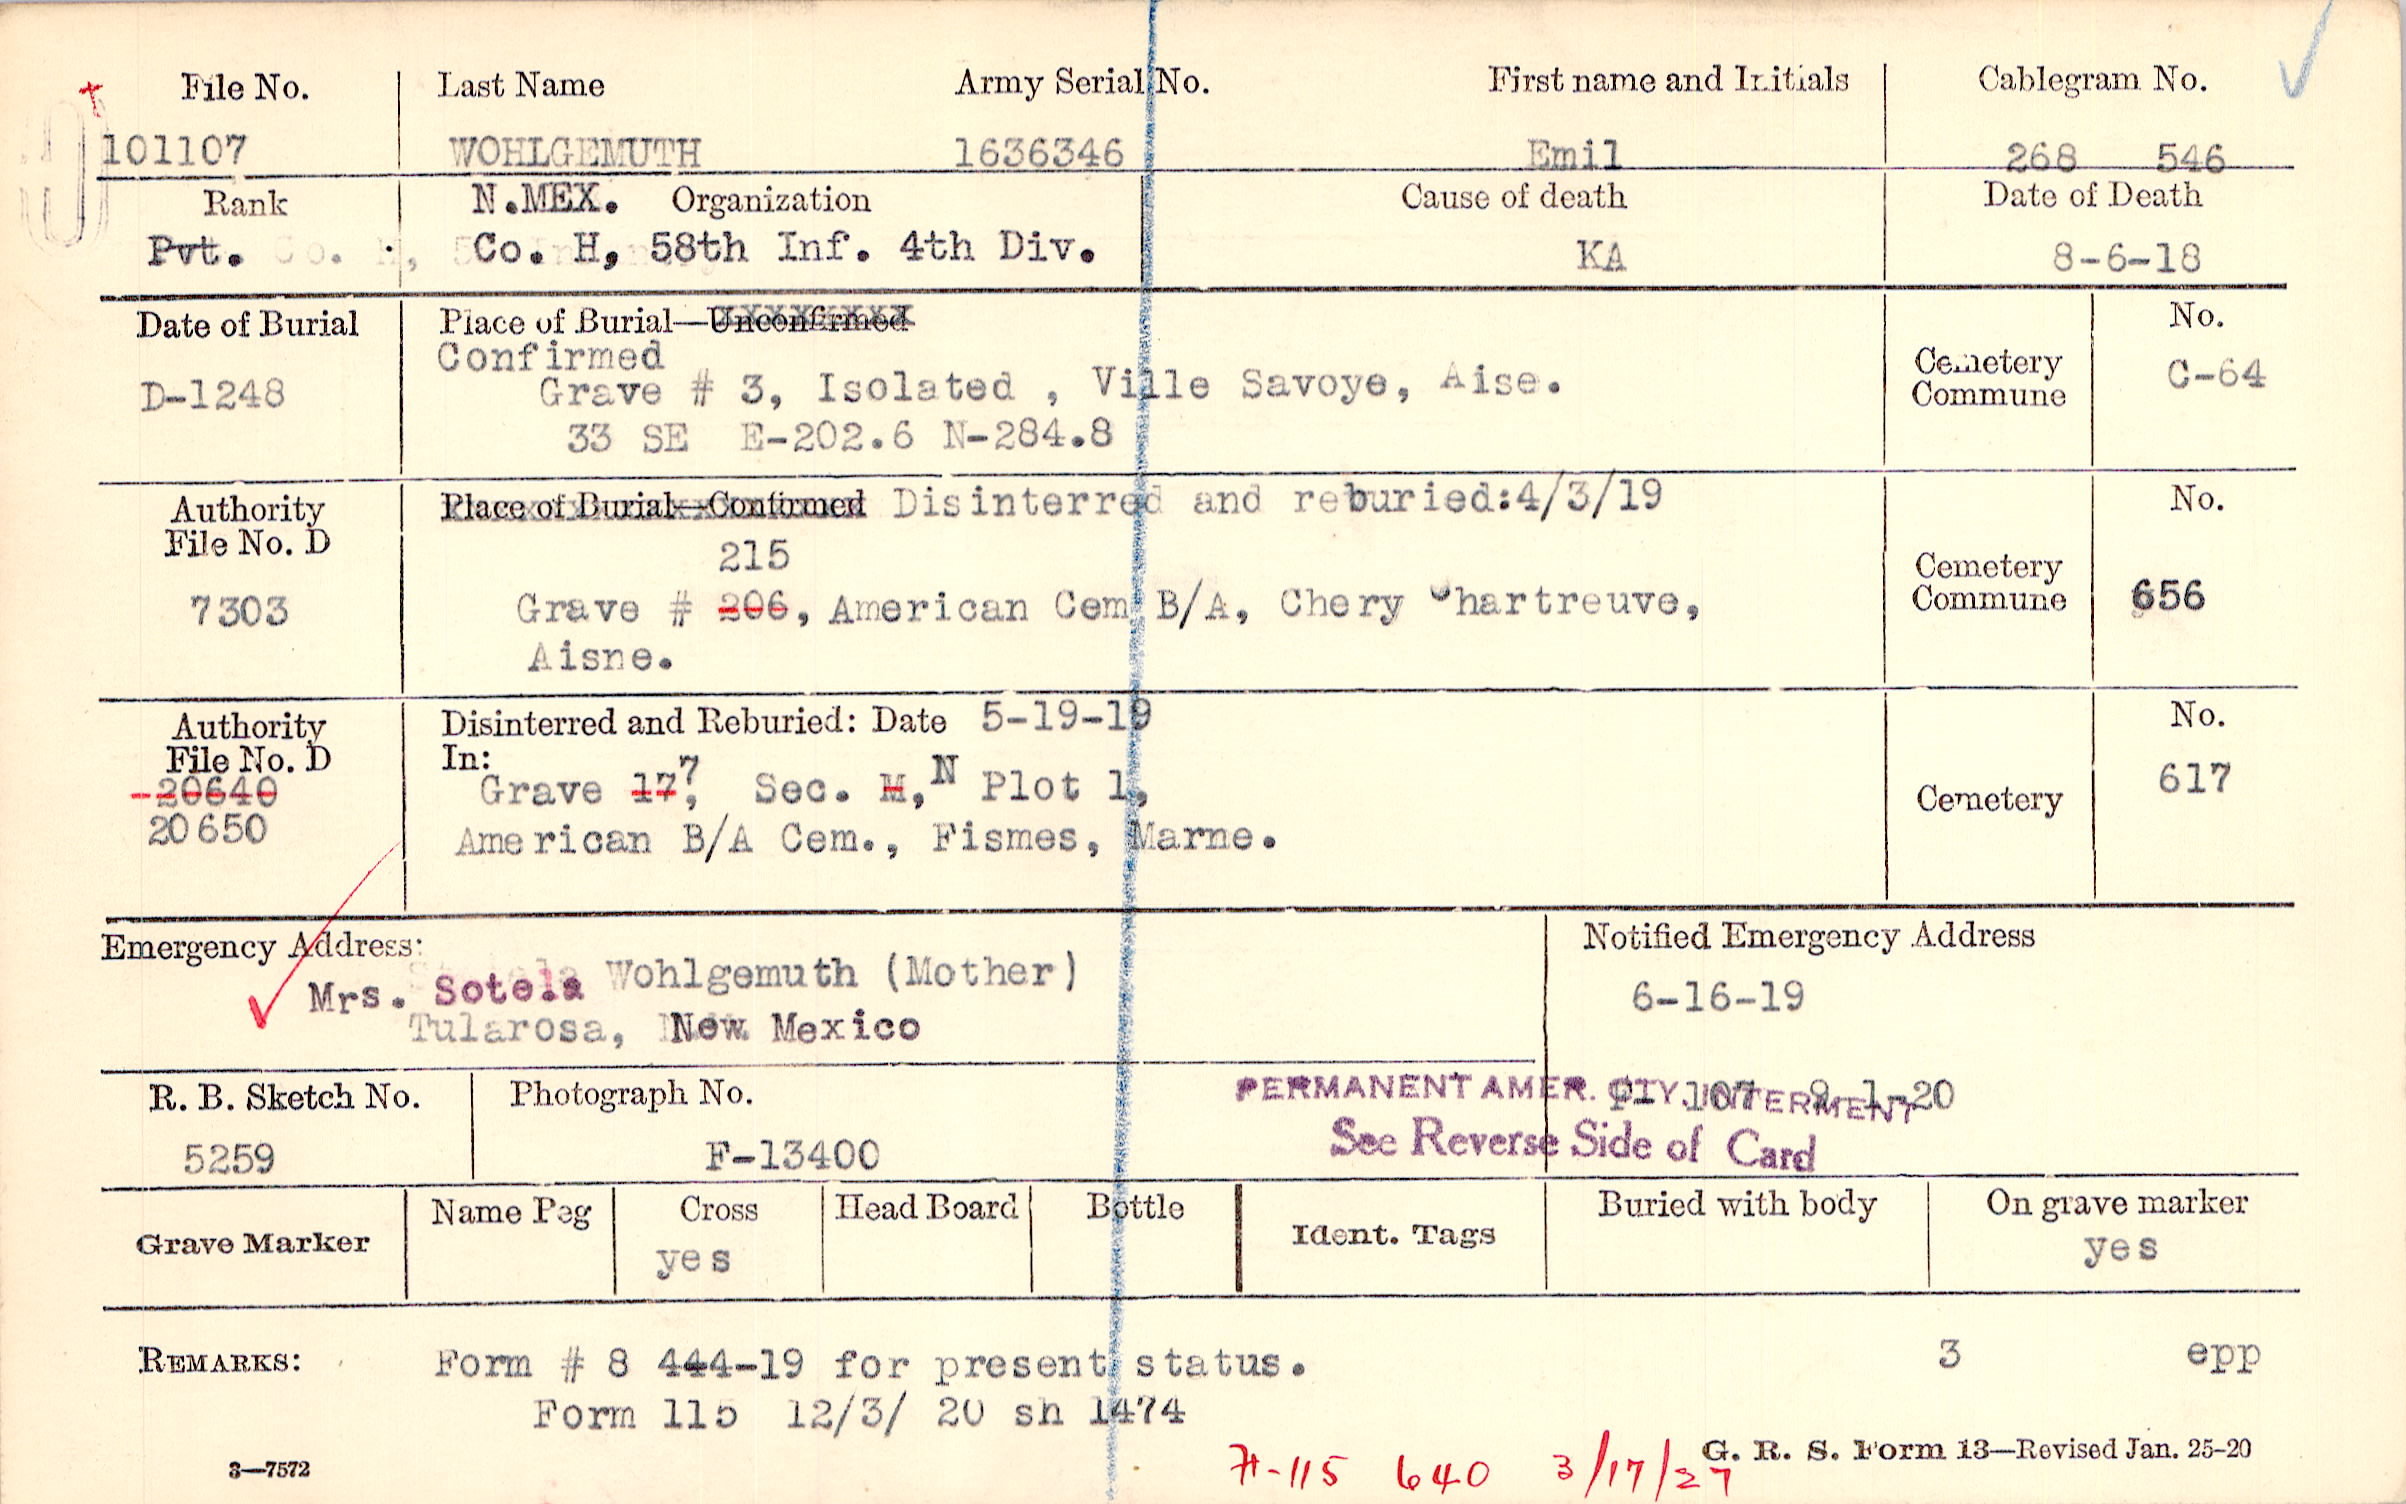 File No. Last Name Army Serial No. First name and Initials Cablegram No.
101107 WOHLGEMUTH 1636346 Emil 268 546
Rank N.MEX. Organization Cause of death Date of Death
Pvt. Co. H, 58th Inf. 4th Div. KA 8-6-18
Date of Burial Place of Burial—Unconfirmed No.
Confirmed
D-1248 Grave # 3, Isolated , Ville Savoye, Aise. Cemetery Commune C-64
33 SE E-202.6 N-284.8
Authority File No. D Place of Burial—Confirmed Disinterred and reburied:4/3/19 No.
215
7303 Grave # 206, American Cem B/A, Chery Chartreuve, Cemetery Commune 656
Aisne.
Authority File No. D Disinterred and Reburied: Date 5-19-19 No.
In:
20640 Grave 17, 7 Sec. M, N Plot 1, Cemetery 617
20650 American B/A Cem., Fismes, Marne.
Emergency Address: Notified Emergency Address
Mrs. Sotela Wohlgemuth (Mother) 6-16-19
Tularosa, New Mexico
R. B. Sketch No. Photograph No. PERMANENT AMER. CTY. INTERMENT 107 9-1-20
5259 F-13400 See Reverse Side of Card
Grave Marker Name Peg Cross Head Board Bottle Ident. Tags Buried with body On grave marker
yes yes
REMARKS: Form # 8 444-19 for present status. 3 epp
Form 115 12/3/ 20 sh 1474
3—7572 H-115 640 3/17/27 G. R. S. Form 13—Revised Jan. 25-20